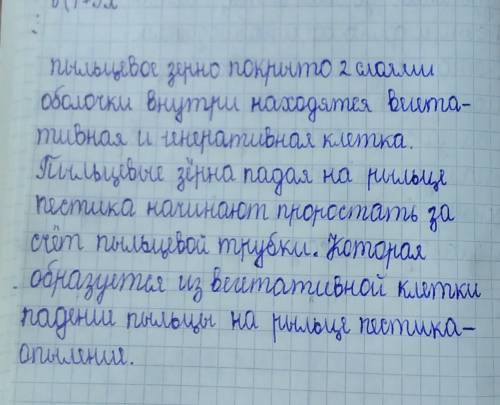 пыльцевое зерно покрыто 2 слоями
оболочки внутри находятся вегета-
тивная и генеративная клетка.
Пыльцевые зёрна падая на рыльце
пестика начинают проростать за
счёт пыльцевой трубки. Которая
образуется из вегетативной клетки
падении пыльцы на рыльце пестика-
опыление.